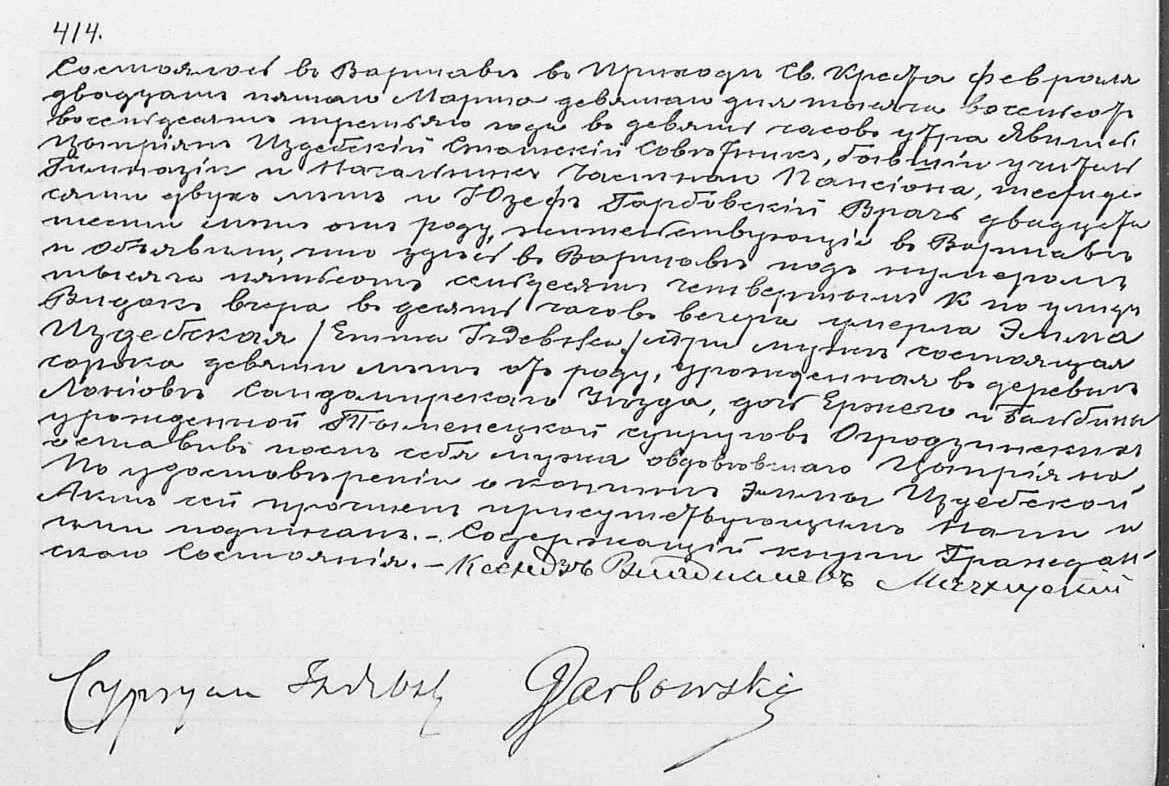 414.
Состоялось въ Варшавѣ въ Приходѣ Св. Креста Февраля
двадцать пятаго Марта девятаго дня тысяча восемьсотъ
восемьдесятъ третьяго года въ девять часовъ утра Явились
Ципріянъ Издебскій Статскій Совѣтникъ, бывшій учитель
Гимназіи и Начальникъ Частнаго Пансіона, шестиде-
сяти двухъ лѣтъ и Юзефъ Гарбовскій Врачъ двадцати
шести лѣтъ отъ роду, жительствующіе въ Варшавѣ
и объявили, что здѣсь въ Варшавѣ подъ нумеромъ
тысяча пятьсотъ семьдесятъ четвертымъ К по улицѣ
Видокъ вчера въ десять часовъ вечера умерла Эмма
Издебская /Emma Izdebska/ при мужѣ состоящая
сорока девяти лѣтъ отъ роду, урожденная въ деревнѣ
Лоніовѣ Сандомирскаго Уѣзда, дочь Ержего и Бальбины
урожденной супруговъ Огродзинскихъ
оставивъ послѣ себя мужа овдовѣвшаго Ципріяна
По удостовѣреніи о кончинѣ Эммы Издебской
Актъ сей прочтенъ присутствующимъ Нами и
ими подписанъ. – Содержащій книги Граждан-
скаго Состоянія. – Ксендзъ
Cypryan Izdebski Garbowski